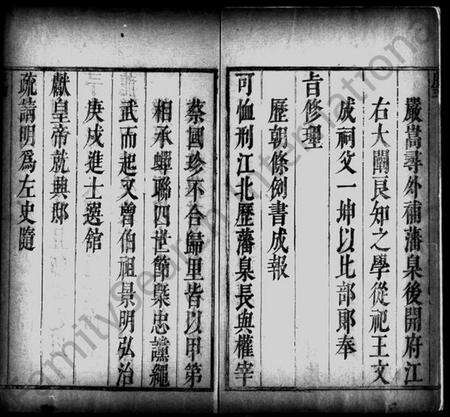 嚴嵩尋外補藩臬後開府江
右大闡良知之學從祀王文
成祠父一坤以比部郎奉
旨修理
歷朝條例書成報
可恤刑江北歷藩臬長與權宰
蔡國珍不合歸里皆以甲第
相承蟬聯四世節槩忠讜繩
武而起又曾伯祖景明弘治
庚戌進士選館
獻皇帝就典邸
疏請明為左史隨
FamilySearch International